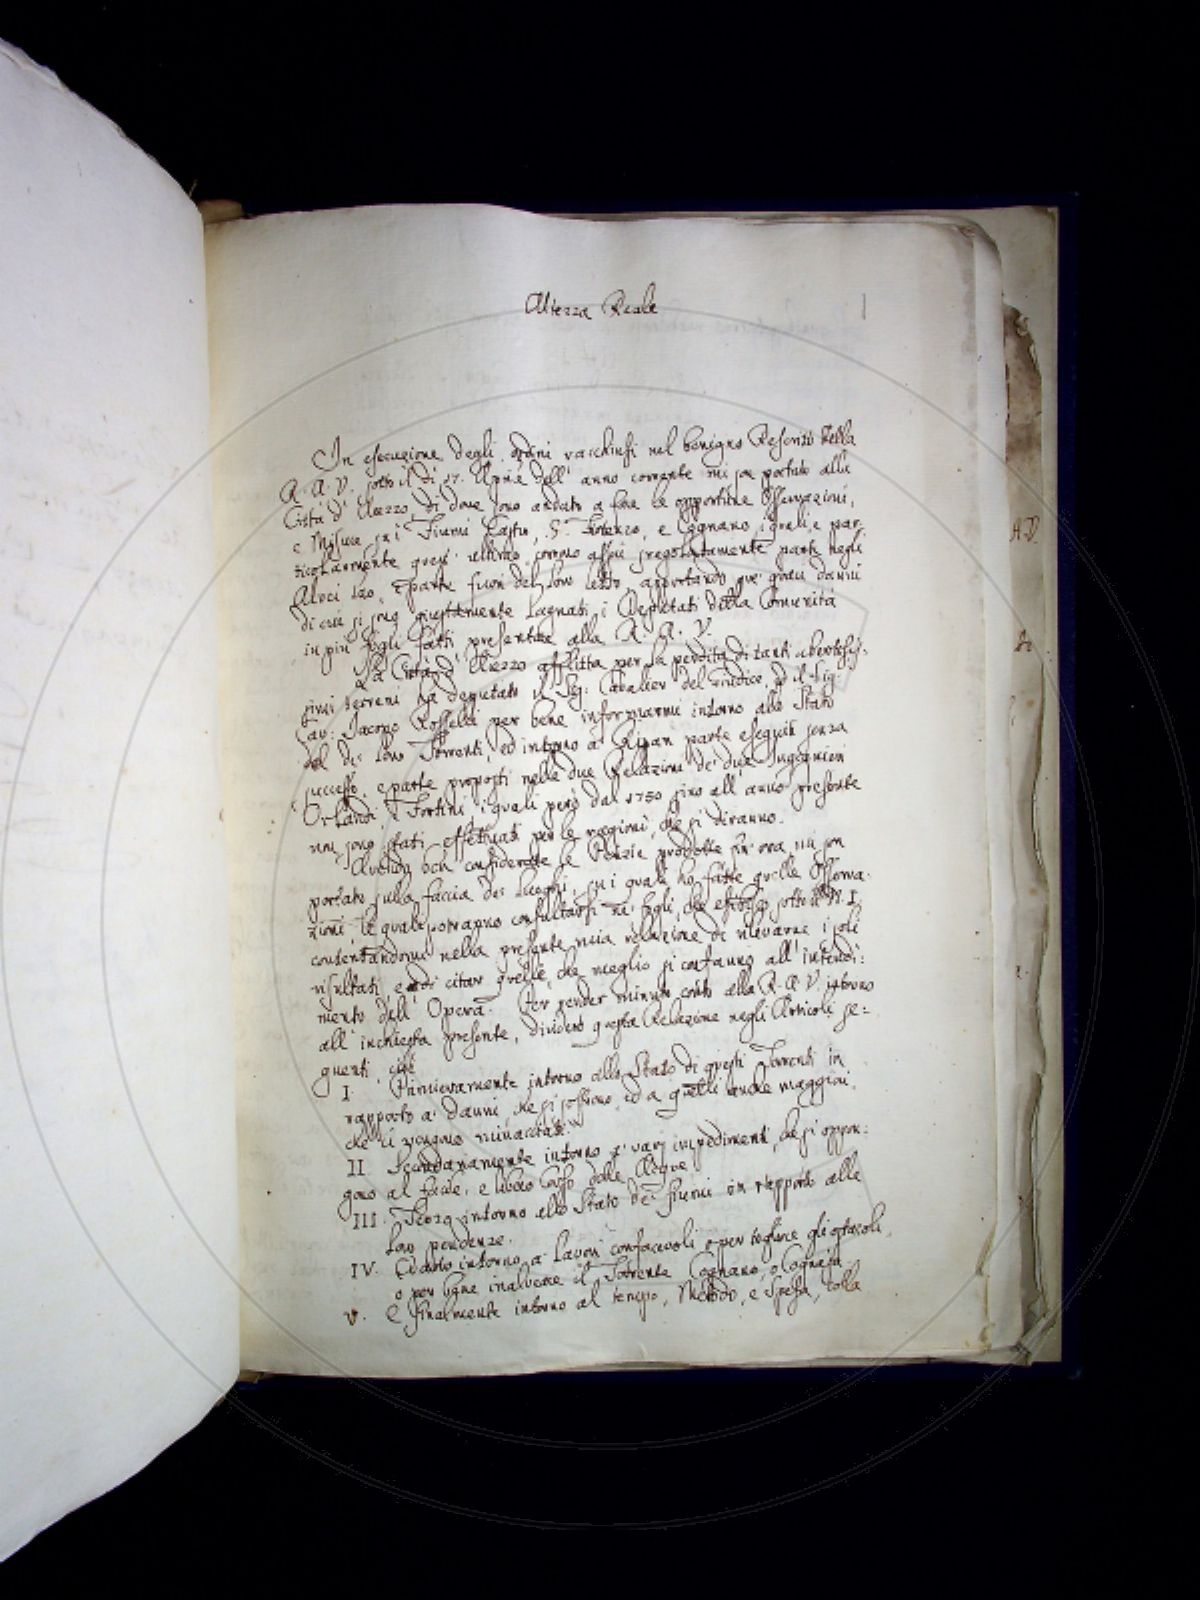 Altezza Reale
In esecuzione degli ordini racchiusi nel benigno Rescritto della
R. A. V. sotto il dì 17. Aprile dell' anno corrente mi son portato alla
Città d' Arezzo, di dove sono andato a fare le opportune Osservazioni,
e Misure su i Fiumi Castro, S. Lorenzo, e Cognano, i quali, e par-
ticolarmente quest' ultimo, corrono assai sregolatamente parte negli
Alvei loro, e parte fuori del loro letto, apportando que' gravi danni
di cui si sono giustamente lagnati i Deputati della Comunità
in più fogli fatti presentare alla R. A. V.
La Città d' Arezzo afflitta per la perdita di tanti ubertosis-
simi terreni ha deputato il Sig: Cavalier del Giudice, ed il Sig:
Cav: Jacopo Rosselli per bene informarmi intorno allo Stato
de' loro Torrenti, ed intorno a' Ripari parte eseguiti senza
successo, e parte proposti nelle due Relazioni de' due Ingegnieri
Orlandi, e Fortini, i quali però dal 1750 sino all' anno presente
non sono stati effettuati per le ragioni, che si diranno.
Avendo ben considerate le Perizie prodotte fin' ora, mi son
portato sulla faccia de' Luoghi, su i quali ho fatte quelle Osserva-
zioni, le quali potranno consultarsi ne' fogli, che esibisco sotto il N. I.
contentandomi nella presente mia relazione di rilevarne i soli
risultati, e di citar quelle, che meglio si confanno all' intendi:
mento dell' Opera. Per render minuto conto alla R. A. V. intorno
all' inchiesta presente, dividerò questa Relazione negli Articoli se:
guenti, cioè
I. Primieramente intorno allo Stato di questi Torrenti in
rapporto a' danni, che si soffrono, ed a quelli anche maggiori,
che ci vengono minacciati.
II. Secondariamente intorno a' varj impedimenti, che si oppon:
gono al facile, e libero Corso delle Acque
III. Terzo intorno allo Stato de' fiumi in rapporto alle
loro pendenze.
IV. Quarto intorno a' Lavori confacevoli o per togliere gli ostacoli,
o per bene inalveare il Torrente Cognano, o Cognaia
V. E finalmente intorno al tempo, Metodo, e Spesa, colla